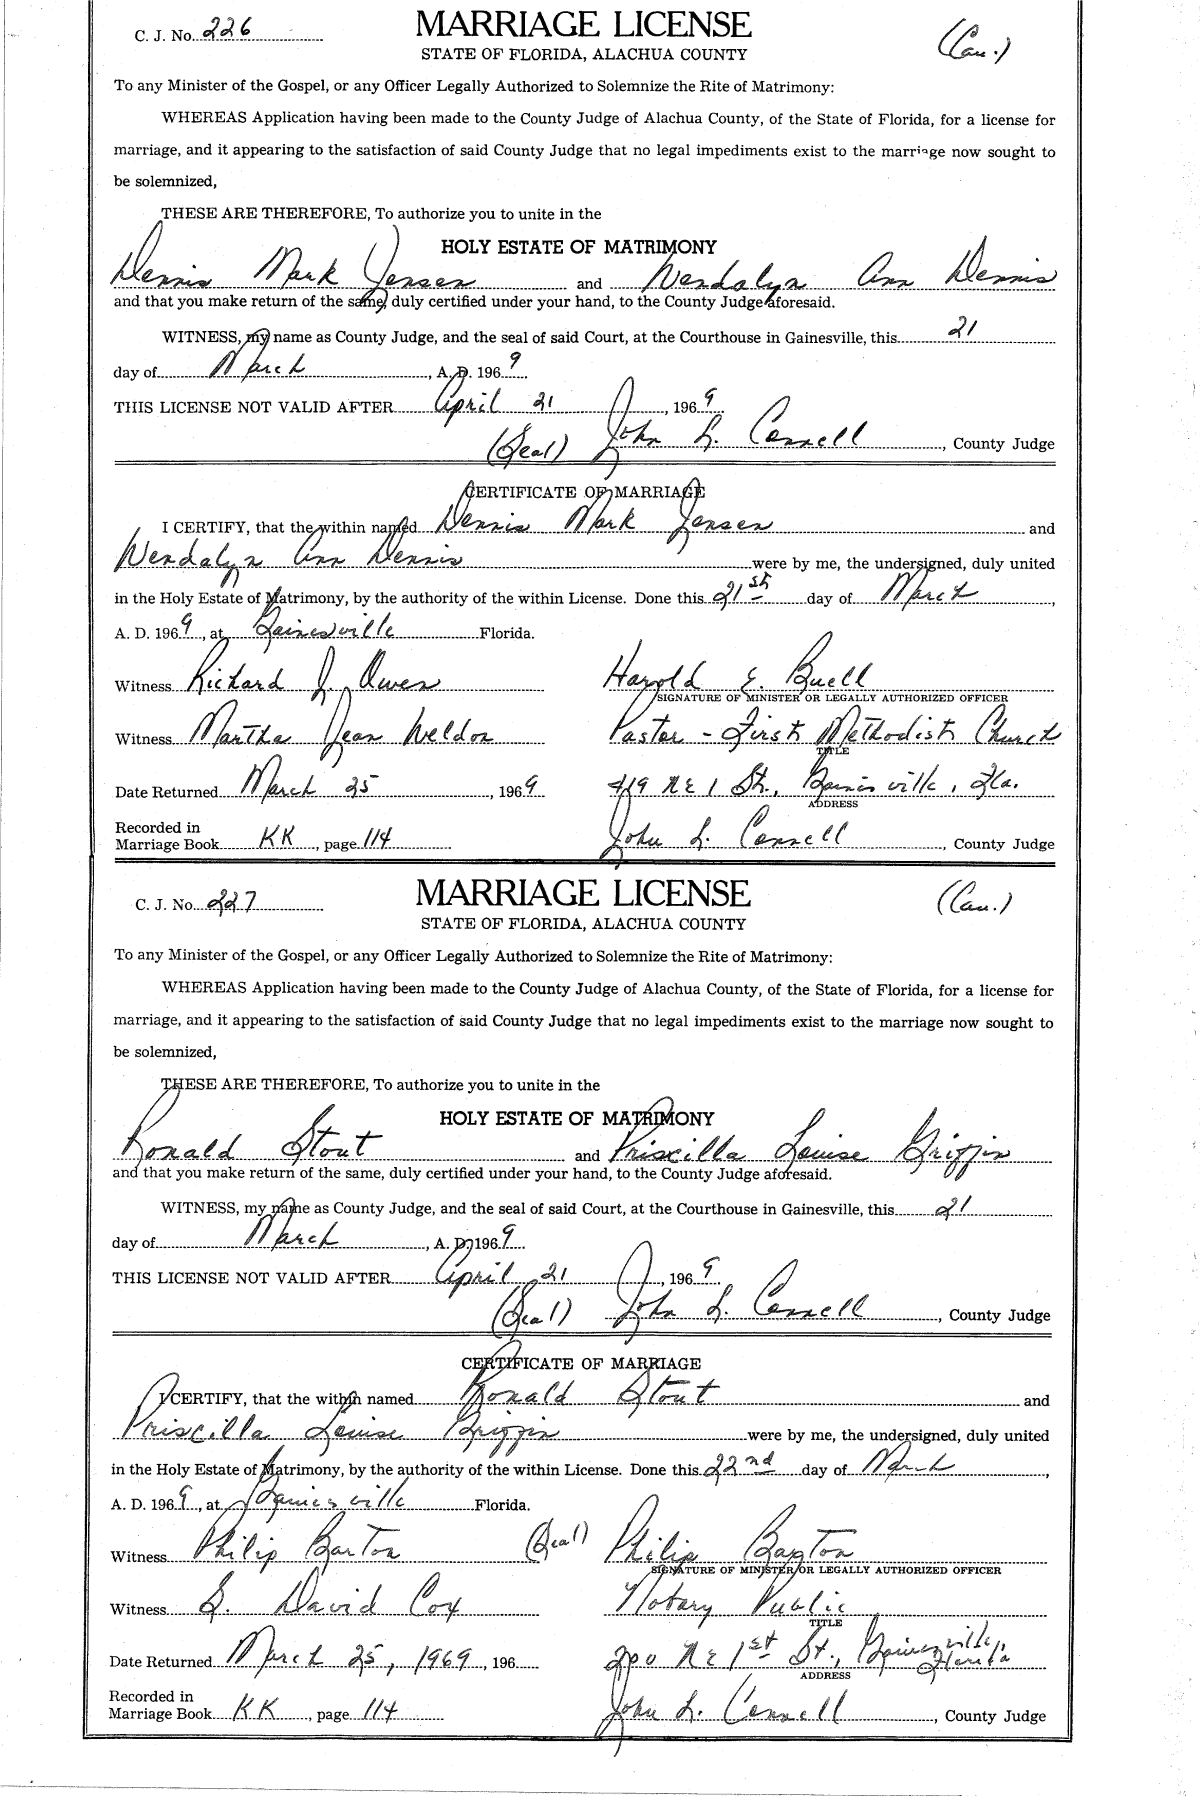 C. J. No. 226 MARRIAGE LICENSE (Cau.)
STATE OF FLORIDA, ALACHUA COUNTY
To any Minister of the Gospel, or any Officer Legally Authorized to Solemnize the Rite of Matrimony:
WHEREAS Application having been made to the County Judge of Alachua County, of the State of Florida, for a license for
marriage, and it appearing to the satisfaction of said County Judge that no legal impediments exist to the marriage now sought to
be solemnized,
THESE ARE THEREFORE, To authorize you to unite in the
HOLY ESTATE OF MATRIMONY
Dennis Mark Jensen and Wendalyn Ann Dennis
and that you make return of the same, duly certified under your hand, to the County Judge aforesaid.
WITNESS, my name as County Judge, and the seal of said Court, at the Courthouse in Gainesville, this 21
day of March, A. D. 1969
THIS LICENSE NOT VALID AFTER April 21, 1969
(Seal) John L. Connell, County Judge
CERTIFICATE OF MARRIAGE
I CERTIFY, that the within named Dennis Mark Jensen and
Wendalyn Ann Dennis were by me, the undersigned, duly united
in the Holy Estate of Matrimony, by the authority of the within License. Done this 21st day of March,
A. D. 1969, at Gainesville Florida.
Witness Richard J. Owen Harold E. Buell
SIGNATURE OF MINISTER OR LEGALLY AUTHORIZED OFFICER
Witness Martha Jean Weldon Pastor - First Methodist Church
TITLE
Date Returned March 25, 1969 419 NE 1 St., Gainesville, Fla.
ADDRESS
Recorded in
Marriage Book KK, page 114 John L. Connell, County Judge
C. J. No. 227 MARRIAGE LICENSE (Cau.)
STATE OF FLORIDA, ALACHUA COUNTY
To any Minister of the Gospel, or any Officer Legally Authorized to Solemnize the Rite of Matrimony:
WHEREAS Application having been made to the County Judge of Alachua County, of the State of Florida, for a license for
marriage, and it appearing to the satisfaction of said County Judge that no legal impediments exist to the marriage now sought to
be solemnized,
THESE ARE THEREFORE, To authorize you to unite in the
HOLY ESTATE OF MATRIMONY
Ronald Stout and Priscilla Louise Griffin
and that you make return of the same, duly certified under your hand, to the County Judge aforesaid.
WITNESS, my name as County Judge, and the seal of said Court, at the Courthouse in Gainesville, this 21
day of March, A. D. 1969
THIS LICENSE NOT VALID AFTER April 21, 1969
(Seal) John L. Connell, County Judge
CERTIFICATE OF MARRIAGE
I CERTIFY, that the within named Ronald Stout and
Priscilla Louise Griffin were by me, the undersigned, duly united
in the Holy Estate of Matrimony, by the authority of the within License. Done this 22nd day of March,
A. D. 1969, at Gainesville Florida.
Witness Philip Barton (Seal) Philip Barton
SIGNATURE OF MINISTER OR LEGALLY AUTHORIZED OFFICER
Witness S. David Cox Notary Public
TITLE
Date Returned March 25, 1969, 196 200 NE 1st St., Gainesville, Florida
ADDRESS
Recorded in
Marriage Book KK, page 114 John L. Connell, County Judge